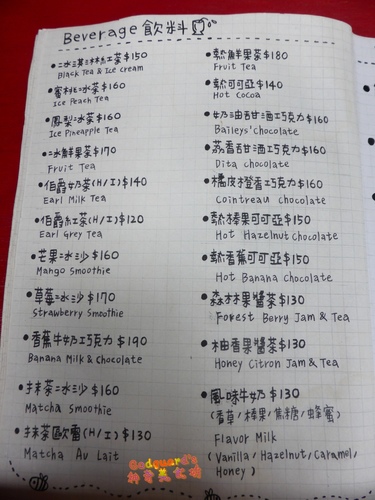 Beverage 飲料
冰淇淋紅茶$150
Black Tea & Ice cream
蜜桃冰茶$160
Ice Peach Tea
鳳梨冰茶$160
Ice Pineapple Tea
冰鮮果茶$170
Fruit Tea
伯爵奶茶(H/I)$140
Earl Milk Tea
伯爵紅茶(H/I)$120
Earl Grey Tea
芒果冰沙$160
Mango Smoothie
草莓冰沙$170
Strawberry Smoothie
香蕉牛奶巧克力$190
Banana Milk & Chocolate
抹茶冰沙$160
Matcha Smoothie
抹茶歐蕾(H/I)$130
Matcha Au Lait
熱鮮果茶$180
Fruit Tea
熱可可亞$140
Hot Cocoa
奶油甜酒巧克力$160
Baileys' chocolate
荔香甜酒巧克力$160
Dita chocolate
橘皮橙香巧克力$160
Cointreau chocolate
熱榛果可可亞$150
Hot Hazelnut Chocolate
熱香蕉可可亞$150
Hot Banana Chocolate
森林果醬茶$130
Forest Berry Jam & Tea
柚香果醬茶$130
Honey Citron Jam & Tea
風味牛奶$130
(香草/榛果/焦糖/蜂蜜)
Flavor Milk
(Vanilla/Hazelnut/Caramel/
Honey)